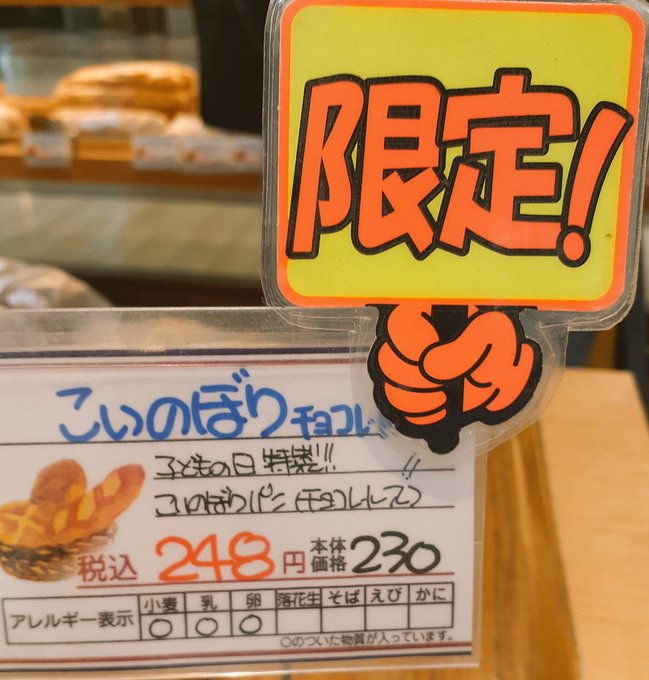 限定!
こいのぼりチョコレ
子どもの日 特製!!
こいのぼりパン(チョコレートクリーム)
税込 248円 本体価格 230
アレルギー表示 小麦 乳 卵 落花生 そば えび かに
○ ○ ○
○のついた物質が入っています。